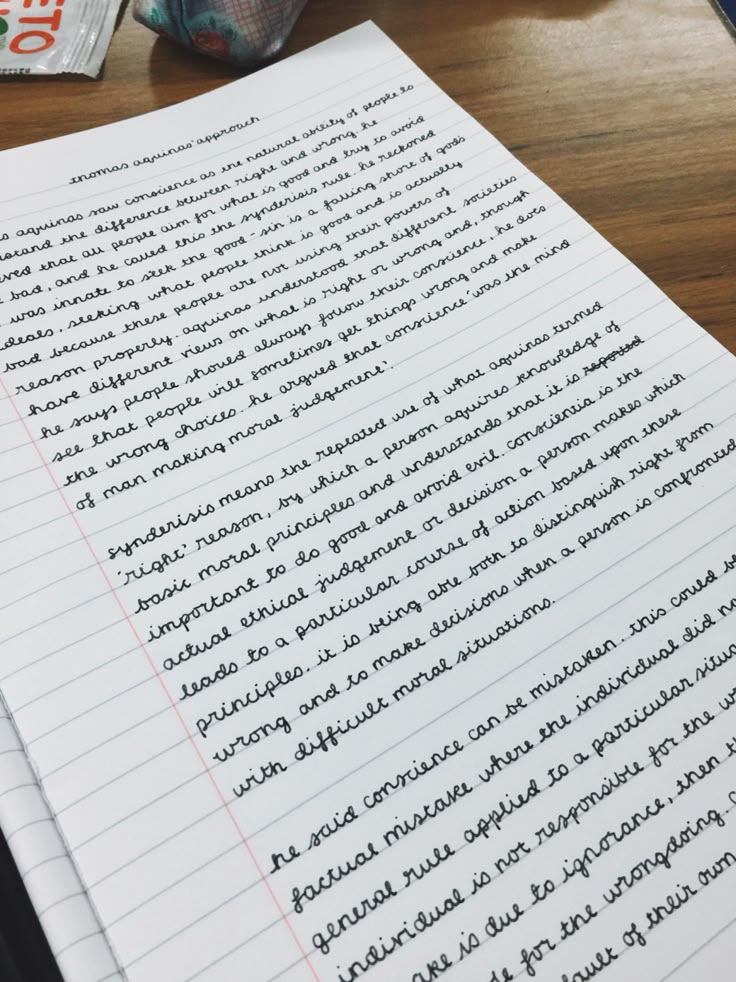 ETO
thomas aquinas' approach
s aquinas saw conscience as the natural ability of people to
stand the difference between right and wrong. he
ved that all people aim for what is good and try to avoid
bad, and he called this the synderisis rule. he reckoned
was innate to seek the good - sin is a falling short of god's
deals, seeking what people think is good and is actually
bad because these people are not using their powers of
reason properly. aquinas understood that different societies
have different views on what is right or wrong and, though
he says people should always follow their conscience, he does
see that people will sometimes get things wrong and make
the wrong choices. he argued that conscience 'was the mind
of man making moral judgement'.
synderisis means the repeated use of what aquinas termed
'right' reason, by which a person aquires knowledge of
basic moral principles and understands that it is reported
important to do good and avoid evil. conscientia is the
actual ethical judgement or decision a person makes which
leads to a particular course of action based upon these
principles. it is being able both to distinguish right from
wrong and to make decisions when a person is confronted
with difficult moral situations.
he said conscience can be mistaken. this could be
factual mistake where the individual did no
general rule applied to a particular situa
individual is not responsible for the w
ake is due to ignorance, then t
le for the wrongdoing.
fault of their own